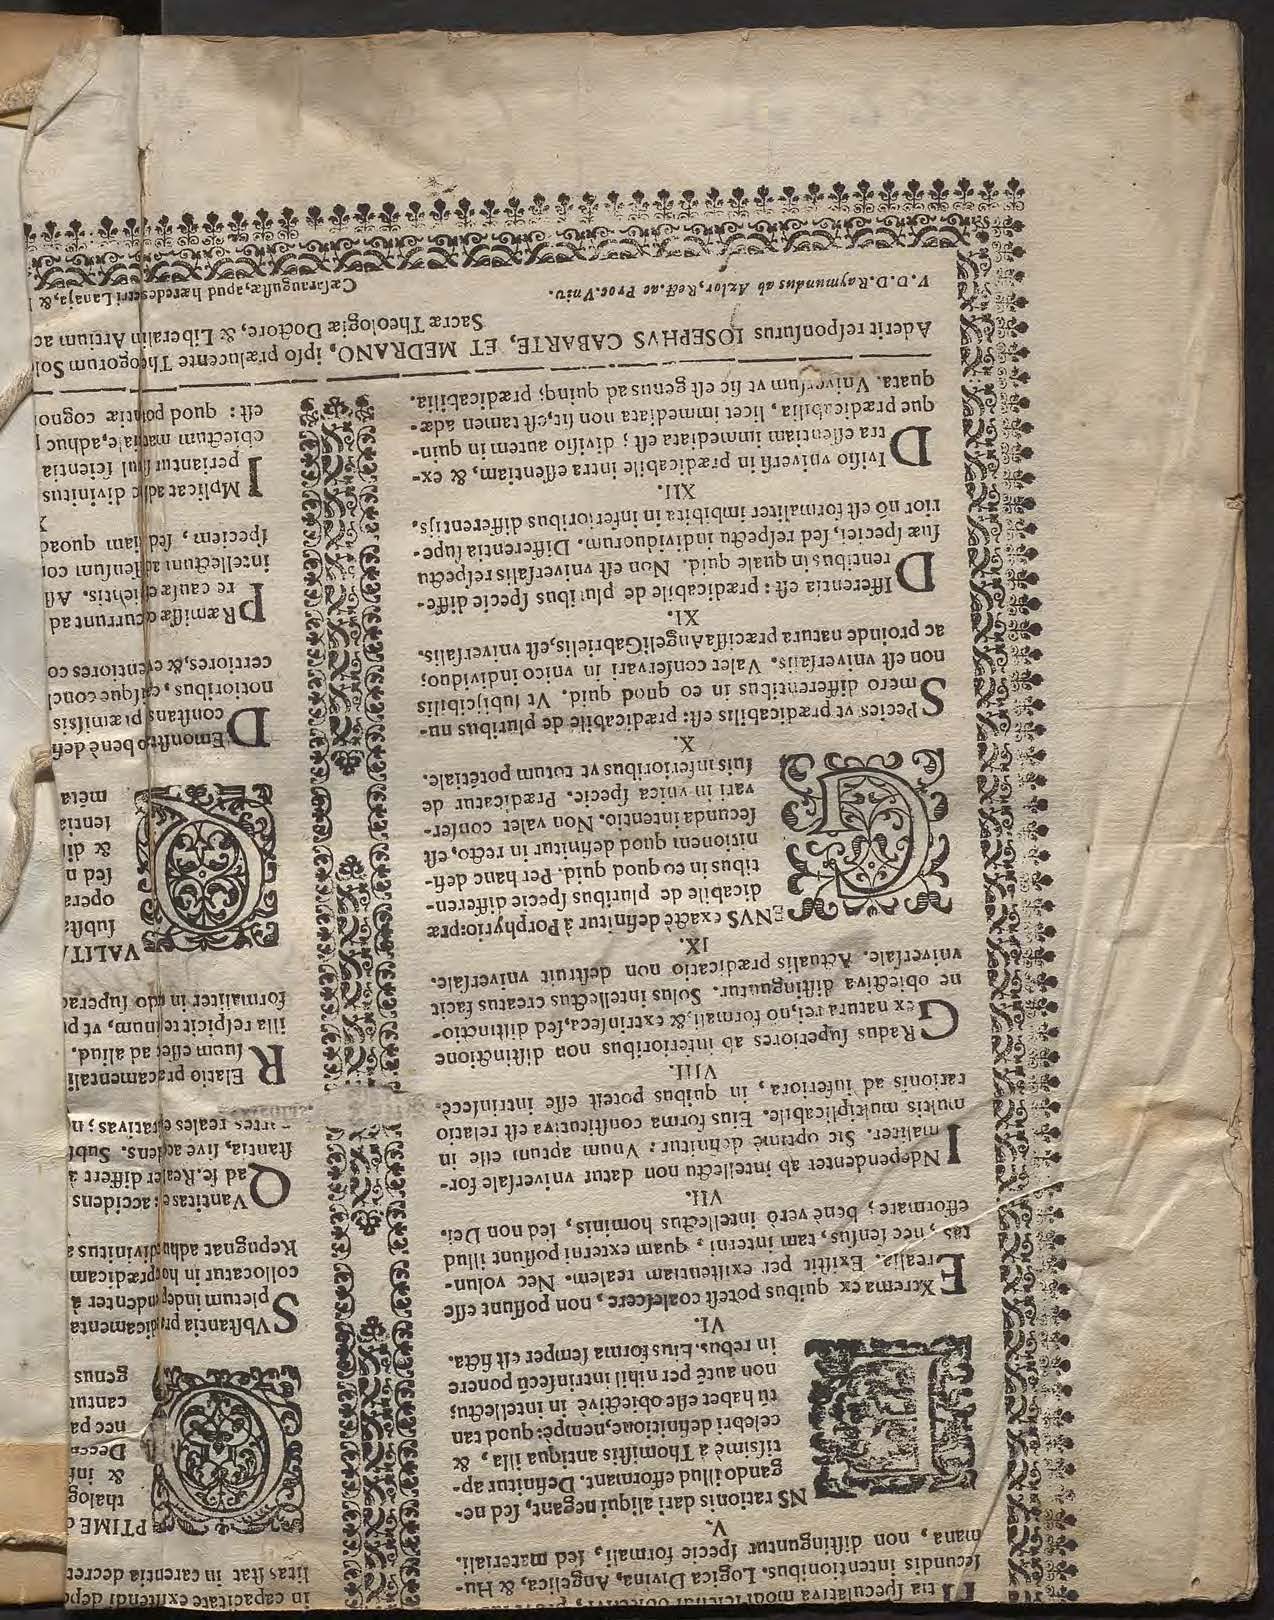 tia speculativa modi sciendi obiectivi,
secundis intentionibus. Logica Divina, Angelica, & Hu-
mana, non distinguntur specie formali, sed materiali.
V.
ENS rationis dari aliqui negant, sed ne-
gando illud efformant. Definitur ap-
tissimè à Thomistis antiqua illa, &
celebri definitione, nempè: quod tan
tũ habet esse obiectivè in intellectu;
non autẽ per nihil intrinsecũ ponere
in rebus. Eius forma semper est ficta.
VI.
EXtrema ex quibus potest coalescere, non possunt esse
realia. Existit per existentiam realem. Nec volun-
tas, nec sensus, tam interni, quam externi possunt illud
efformare; benè verò intellectus hominis, sed non Dei.
VII.
INdependenter ab intellectu non datur vniversale for-
maliter. Sic optimè definitur: Vnum aptum esse in
multis multiplicabile. Eius forma constitutiva est relatio
rationis ad inferiora, in quibus potest esse intrinsecè.
VIII.
GRadus superiores ab inferioribus non distinctione
ex natura rei, nõ formali, & extrinseca, sed distinctio-
ne obiectiva distinguntur. Solus intellectus creatus facit
vniversale. Actualis prædicatio non destruit vniversale.
IX.
GENVS exactè definitur à Porphyrio: præ
dicabile de pluribus specie differen-
tibus in eo quod quid. Per hanc defi-
nitionem quod definitur in recto, est
secunda intentio. Non valet conser-
vari in vnica specie. Prædicatur de
suis inferioribus vt totum potẽtiale.
X.
SPecies vt prædicabilis est: prædicabile de pluribus nu-
mero differentibus in eo quod quid. Vt subijcibilis
non est vniversalis. Valet conservari in vnico individuo;
ac proinde natura præcissa Angeli Gabrielis, est vniversalis.
XI.
DIfferentia est: prædicabile de pluribus specie diffe-
rentibus in quale quid. Non est vniversalis respectu
suæ speciei, sed respectu individuorum. Differentia supe-
rior nõ est formaliter imbibita in inferioribus differentijs.
XII.
DIvisio vniversi in prædicabile intra essentiam, & ex-
tra essentiam immediata est; divisio autem in quin-
que prædicabilia, licet immediata non sit, est tamen adæ-
quata. Vniversum vt sic est genus ad quinq; prædicabilia.
in capacitate existendi dep
litas stat in carentia decret
OPTIME
thalog
& inf
Decca
nec pa
cantur
genus
SVbstantia prædicamenta
pletum independenter à
collocatur in hoc prædicam
Repugnat adhuc divinitus a
QVantitas est accidens
ad se. Realiter differt à
stantia, sive accidens. Subst
partes reales
RElatio prædicamentali
suum esse ad aliud.
illa respicit terminum, vt p
formaliter in ado superac
QVALITA
substa
opera
sed n
& dif
sentia
mẽta
DEmonstratio bene defi
constans præmissis
notioribus, causisque concl
certiores, & eventiores co
PRæmissæ concurrunt ad
re causæ efficientis. Ast
intellectum ad assensum con
speciem, sed etiam quoad
X
IMplicat adhuc divinitus
periantur simul scientia
obiectum materiale, adhuc
est: quod potiatiæ cogno
Aderit responsurus IOSEPHVS CABARTE, ET MEDRANO, ipso prælucente Theogorum Sol
Sacræ Theologiæ Doctore, & Liberalin Artium ac
V. D. D. Raymundus ab Azlor, Rect. ac Proc. Vniv.
Cæsaraugustæ, apud hæredes Petri Lanaja, &